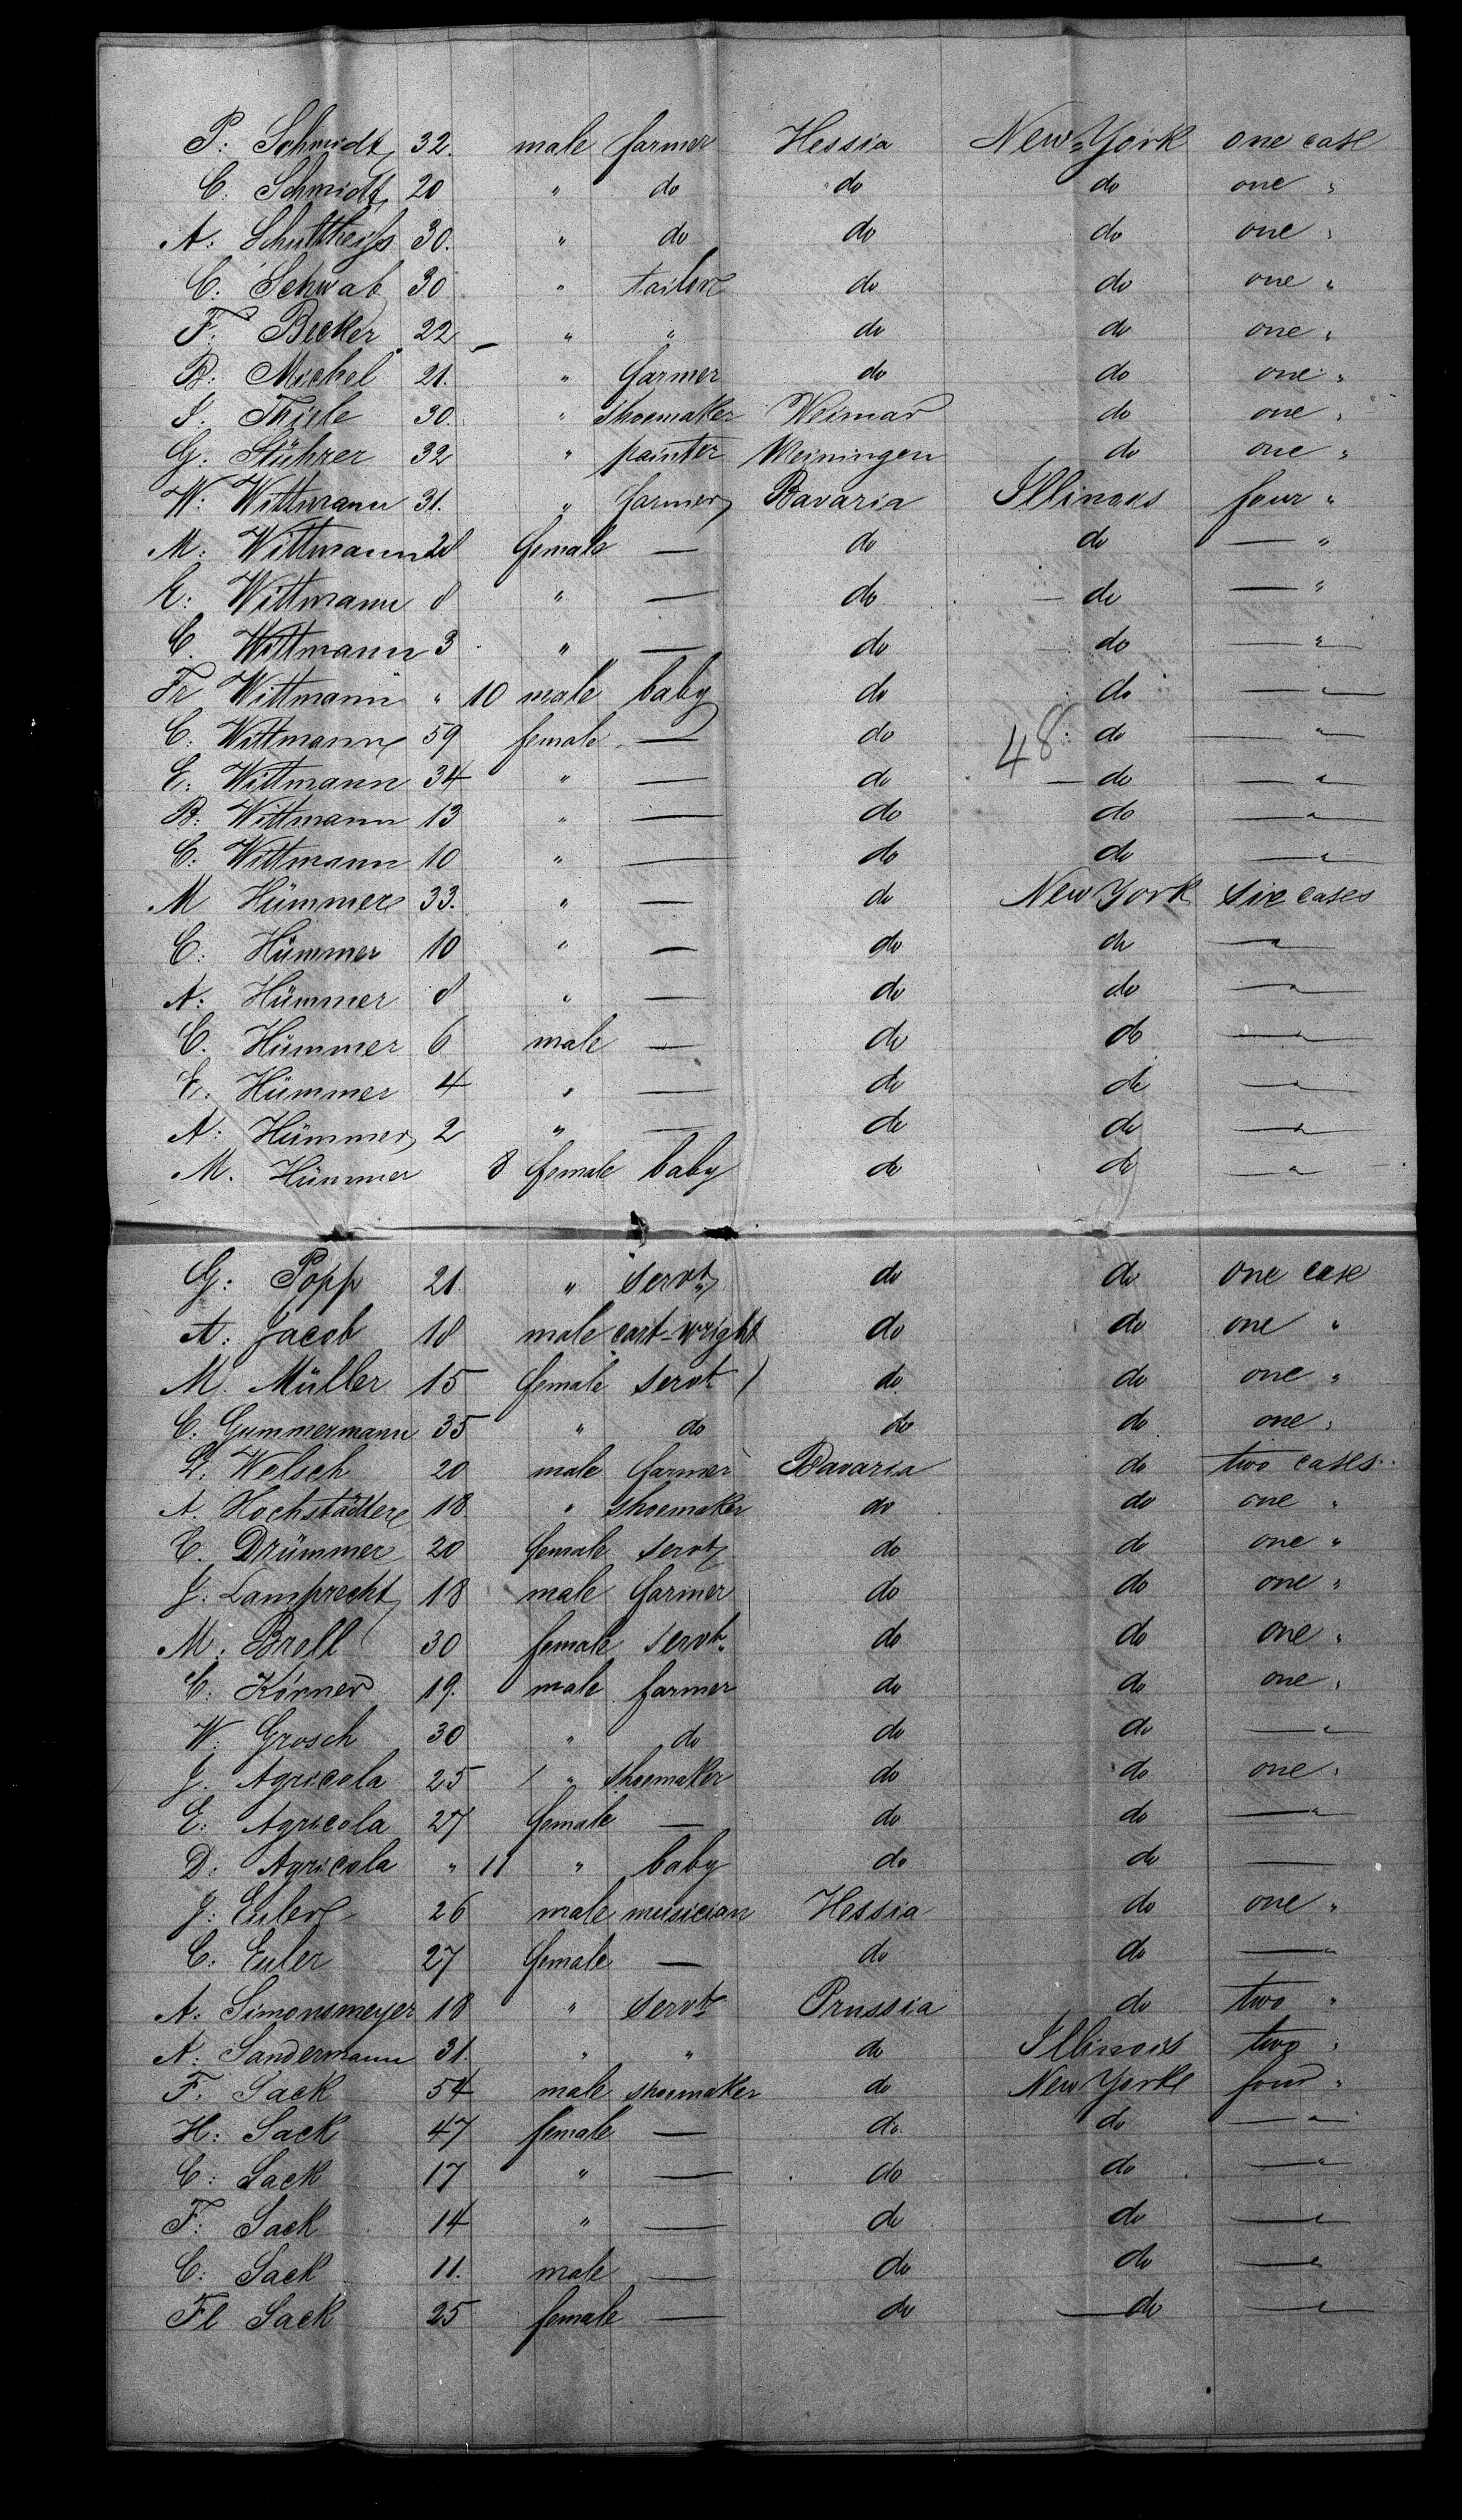 P: Schmidt 32. male farmer Hessia New-York one case
C: Schmidt 20 " do do do one "
A: Schultheiſs 30. " do do do one "
C: Schwab 30 " tailor do do one "
F: Becker 22 " " do do one "
B: Michel 21. " farmer do do one "
S. Thiele 30. " shoemaker Weimar do one "
G: Stührer 32 " painter Meiningen do one "
W: Wittmann 31. " farmer Bavaria Illinois four "
M: Wittmann 28 female — do do — "
E: Wittmann 8 " — do do — "
C. Wittmann 3 " — do do — "
Fr Wittmann " 10 male baby do do — "
C: Wittmann 59 female — do 48 do — "
E: Wittmann 34 " — do do — "
B: Wittmann 13 " — do do — "
C: Wittmann 10 " — do do — "
M Hümmer 33. " — do New York six cases
C: Hümmer 10 " — do do — "
A: Hümmer 8 " — do do — "
C. Hümmer 6 male — do do — "
E. Hümmer 4 " — do do — "
A: Hümmer 2 " — do do — "
M. Hümmer 8 female baby do do — "
G: Popp 21. " servt. do do one case
A: Jacob 18 male cart-wright do do one "
M. Müller 15 female servt. do do one "
C. Gummermann 35 " do do do one "
L. Welsch 20 male farmer Bavaria do two cases
A. Hochstädter 18 " shoemaker do do one "
C. Drümmer 20 female servt do do one "
J: Lamprecht 18 male farmer do do one "
M. Brell 30 female servt. do do one "
C: Körner 19. male farmer do do one "
W: Grosch 30 " do do do — "
J. Agricola 25 " shoemaker do do one "
E: Agricola 27 female — do do — "
D: Agricola " 11 " baby do do —
J: Euler 26 male musician Hessia do one "
C: Euler 27 female — do do — "
A: Simonsmeyer 18 " servt. Prussia do two "
A: Sandermann 31. " " do Illinois two "
F: Sack 54 male shoemaker do New York four "
H: Sack 47 female — do do — "
C: Sack 17 " — do do — "
F: Sack 14 " — do do — "
C: Sack 11. male — do do — "
Fl Sack 25 female — do do — "